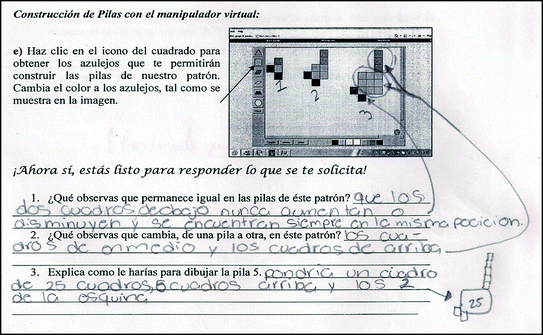 Construcción de Pilas con el manipulador virtual:
e) Haz clic en el icono del cuadrado para
obtener los azulejos que te permitirán
construir las pilas de nuestro patrón.
Cambia el color a los azulejos, tal como se
muestra en la imagen.
1
2
3
¡Ahora si, estás listo para responder lo que se te solicita!
1. ¿Qué observas que permanece igual en las pilas de éste patrón? que los
dos cuadros de abajo nunca aumentan o
disminuyen y se encuentran siempre en la misma pocicion.
2. ¿Qué observas que cambia, de una pila a otra, en éste patrón? los cua-
dros de enmedio y los cuadros de arriba
3. Explica como le harías para dibujar la pila 5. pondria un cuadro
de 25 cuadros, 5 cuadros arriba y los 2
de la esquina
25